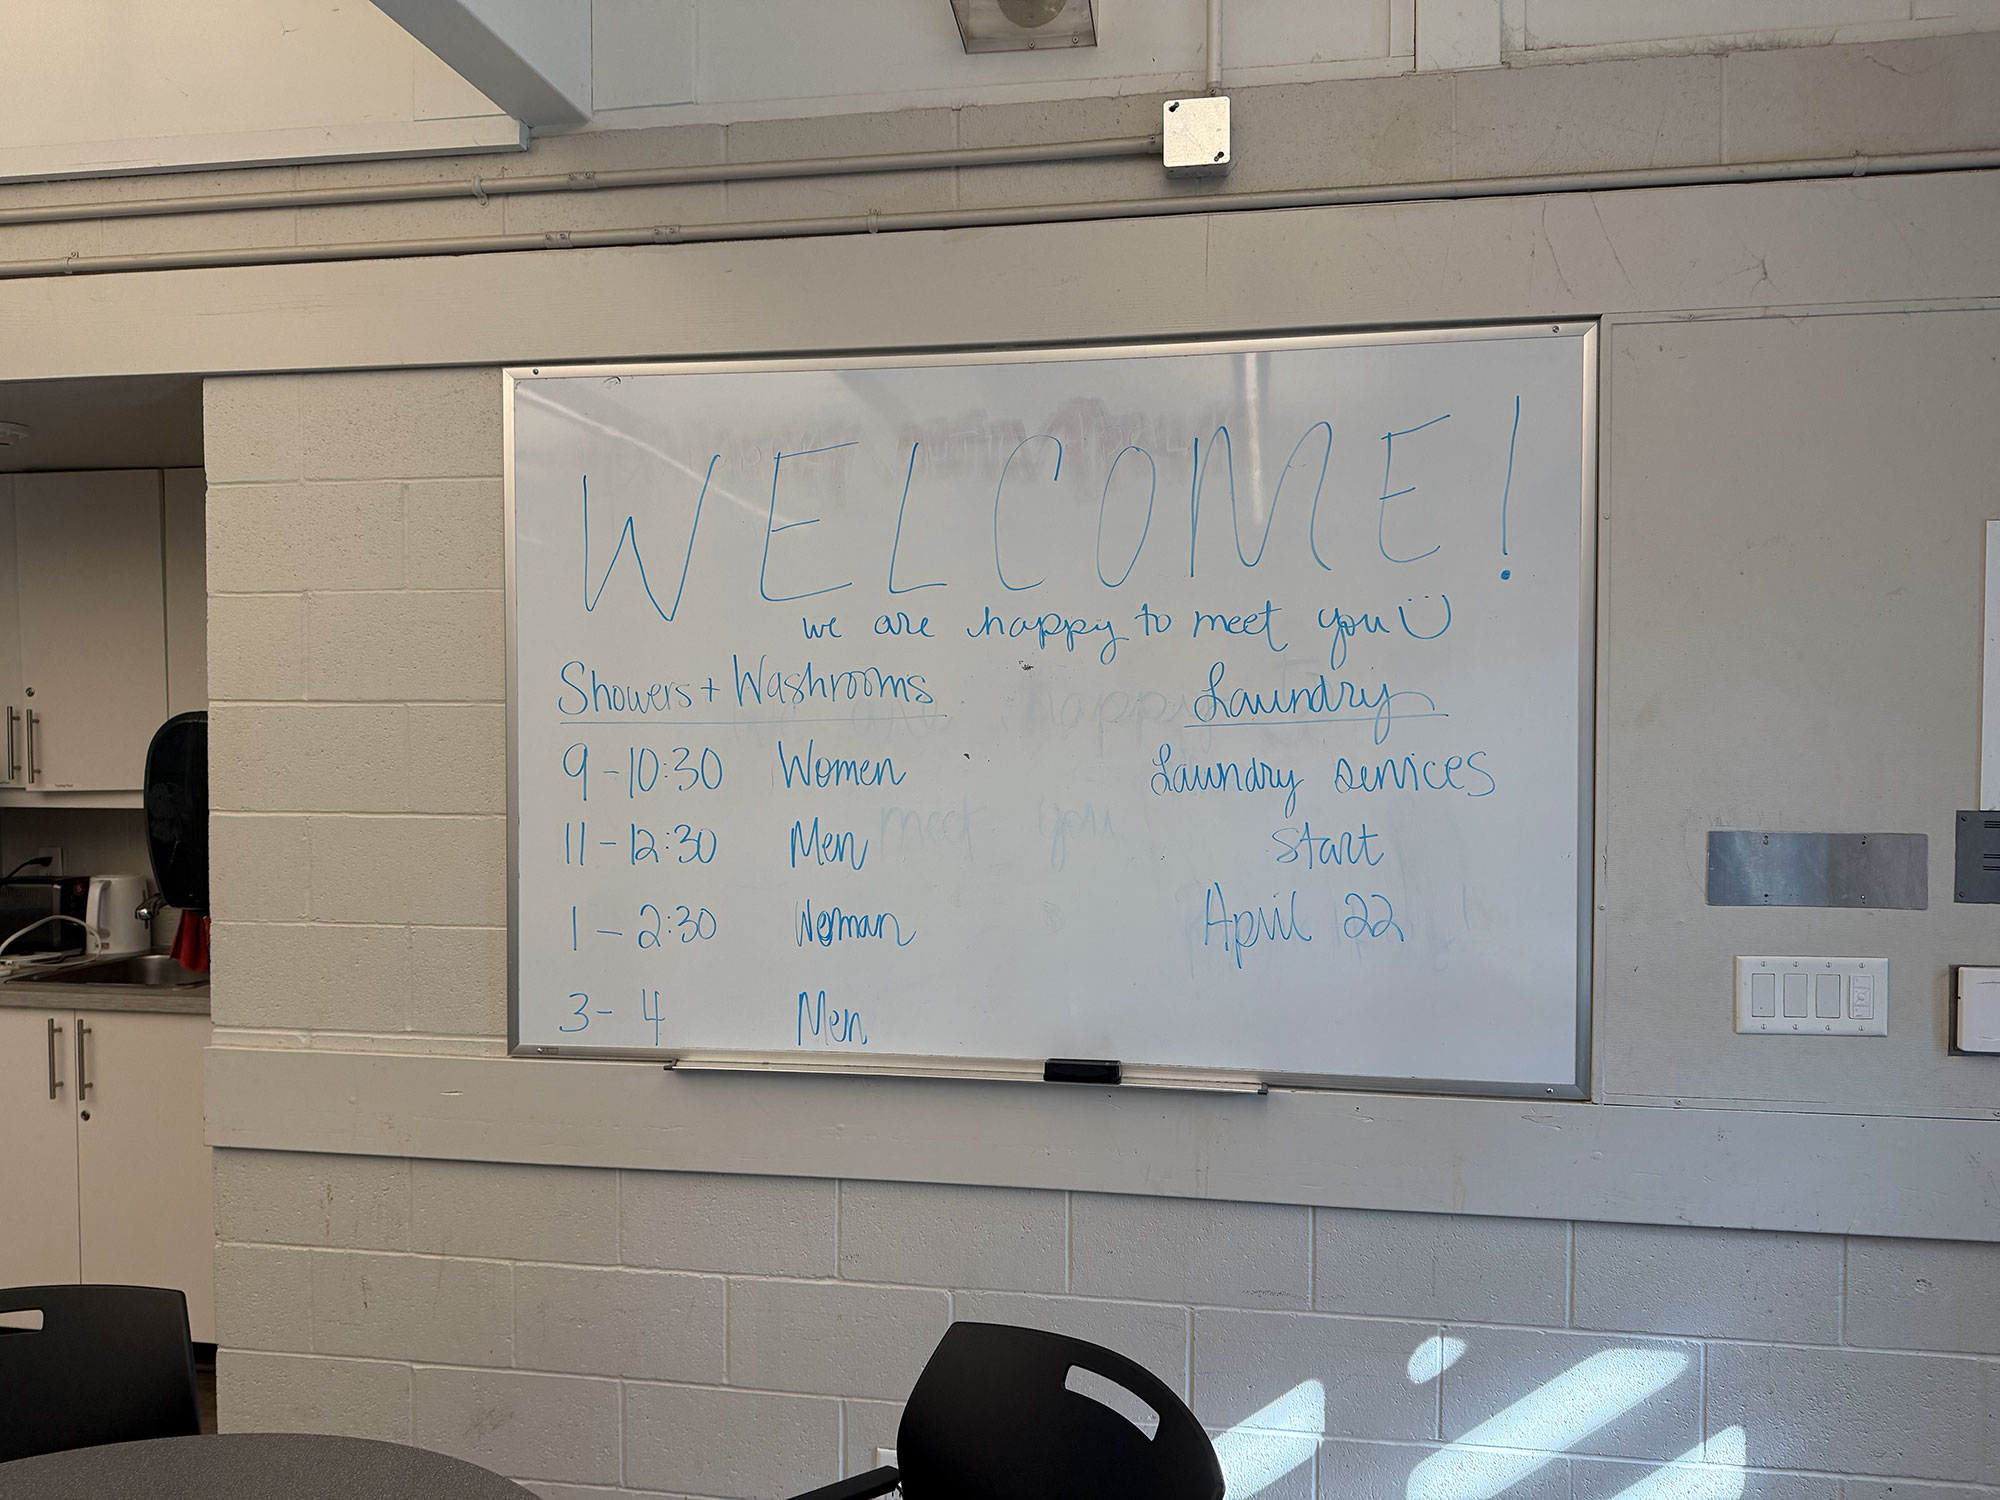 WELCOME!
we are happy to meet you
Showers + Washrooms
9-10:30 Women
11-12:30 Men
1-2:30 Woman
3-4 Men
Laundry
Laundry services
start
April 22